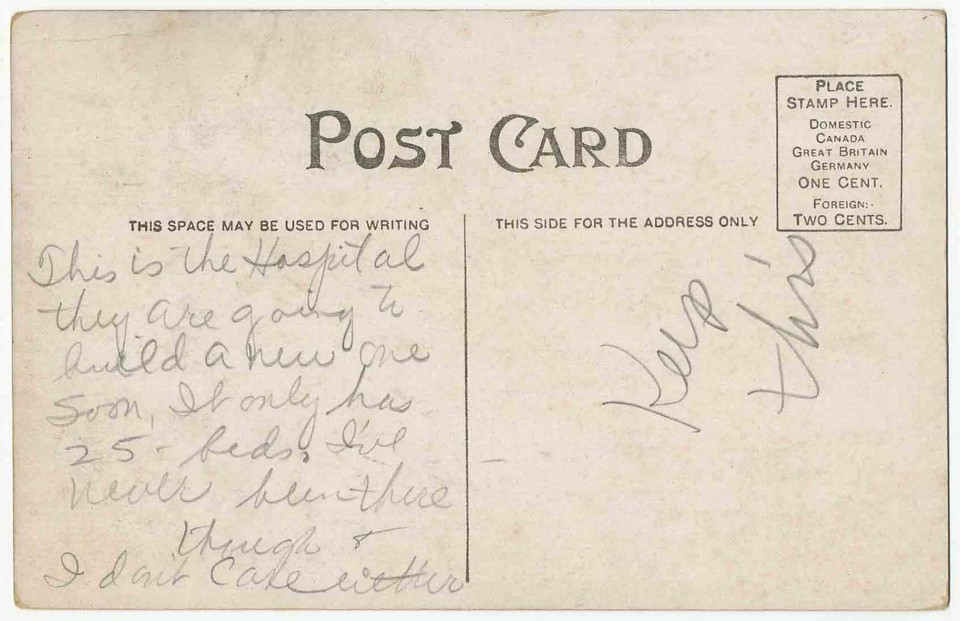 POST CARD
PLACE
STAMP HERE.
DOMESTIC
CANADA
GREAT BRITAIN
GERMANY
ONE CENT.
FOREIGN:-
TWO CENTS.
THIS SPACE MAY BE USED FOR WRITING
THIS SIDE FOR THE ADDRESS ONLY
This is the Hospital
they are going to
build a new one
Soon, It only has
25 - beds. I've
never been there
though &
I don't care either
Keep
this